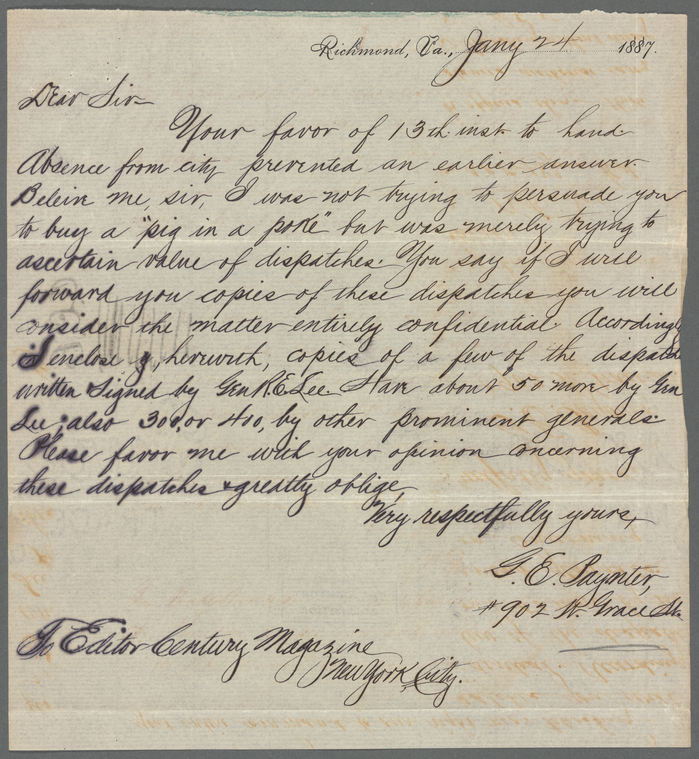 Richmond, Va., Jany 24 1887.
Dear Sir
Your favor of 13th inst to hand.
Absence from city prevented an earlier answer.
Beleive me, sir, I was not trying to persuade you
to buy a "pig in a poke" but was merely trying to
ascertain value of dispatches. You say if I will
forward you copies of these dispatches you will
consider the matter entirely confidential. Accordingly
I enclose herewith, copies of a few of the dispatches
written & signed by Gen R. E. Lee. I have about 50 more by Gen
Lee; also 300, or 400, by other prominent generals.
Please favor me with your opinion concerning
these dispatches & greatly oblige,
Very respectfully yours,
G. E. Paynter,
#902 W. Grace St.
To Editor Century Magazine
New York City.